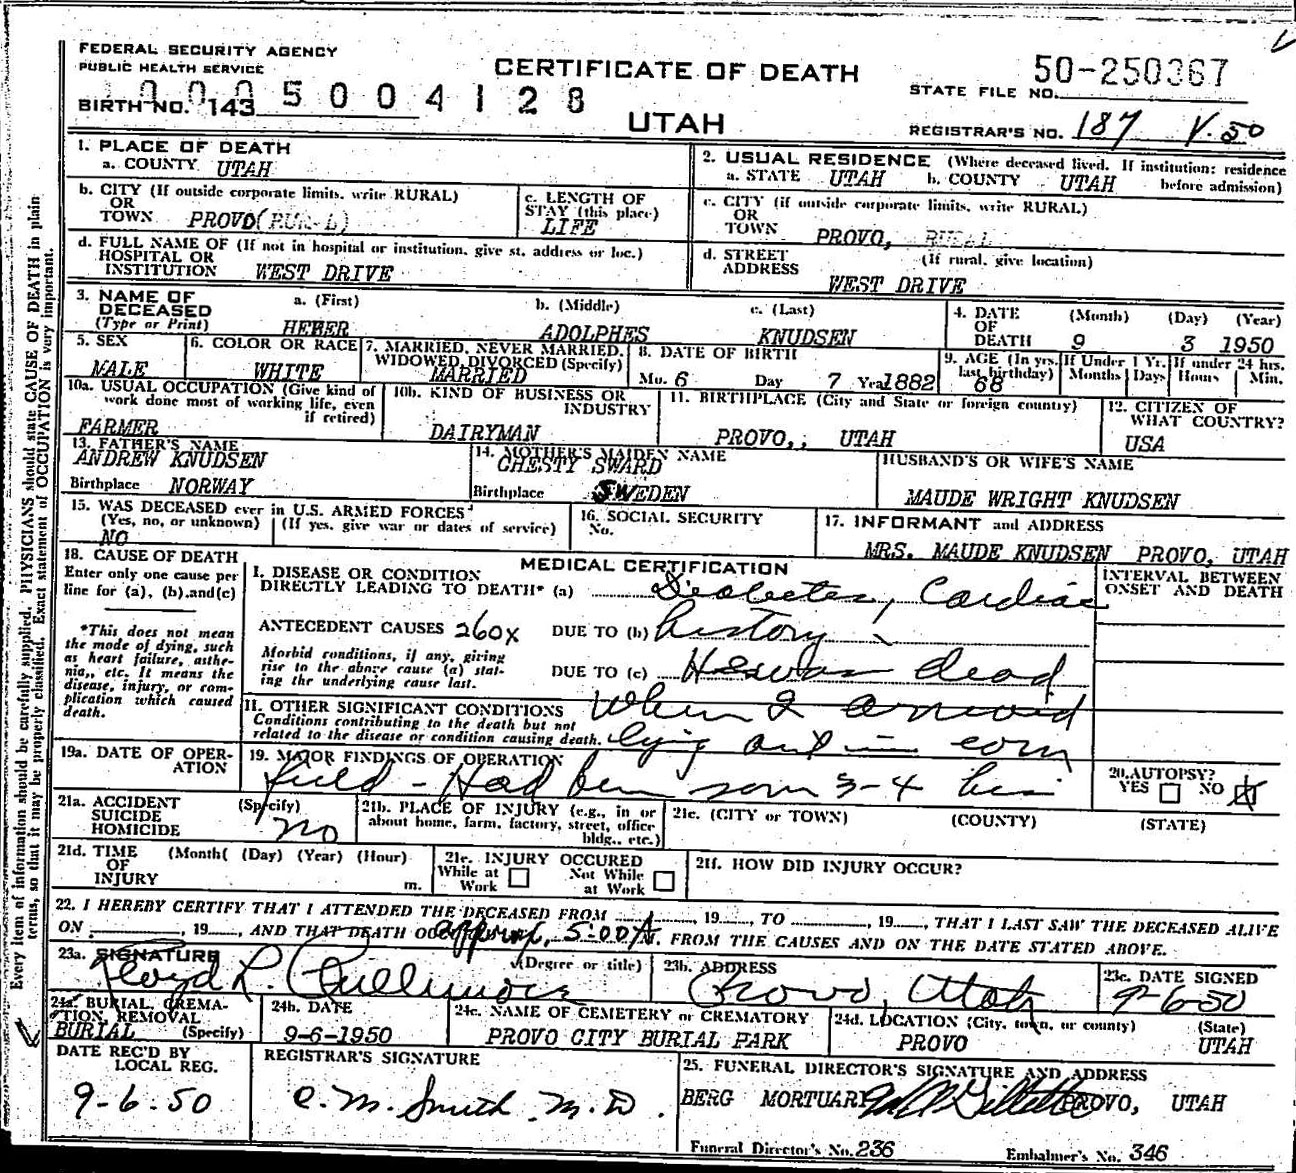 FEDERAL SECURITY AGENCY
PUBLIC HEALTH SERVICE
CERTIFICATE OF DEATH
UTAH
BIRTH NO. 143
5004128
STATE FILE NO. 50-250367
REGISTRAR'S NO. 187 V. 50
Every item of information should be carefully supplied. PHYSICIANS should state CAUSE OF DEATH in plain
terms, so that it may be properly classified. Exact statement of OCCUPATION is very important.
1. PLACE OF DEATH
a. COUNTY UTAH
2. USUAL RESIDENCE (Where deceased lived. If institution: residence
a. STATE UTAH b. COUNTY UTAH before admission)
b. CITY (If outside corporate limits, write RURAL)
OR
TOWN PROVO (RURAL)
c. LENGTH OF
STAY (this place)
LIFE
c. CITY (if outside corporate limits, write RURAL)
OR
TOWN PROVO, RURAL
d. FULL NAME OF (If not in hospital or institution, give st. address or loc.)
HOSPITAL OR
INSTITUTION WEST DRIVE
d. STREET (If rural, give location)
ADDRESS WEST DRIVE
3. NAME OF
DECEASED
(Type or Print)
a. (First) HEBER
b. (Middle) ADOLPHES
c. (Last) KNUDSEN
4. DATE
OF
DEATH
(Month) (Day) (Year)
9 3 1950
5. SEX
MALE
6. COLOR OR RACE
WHITE
7. MARRIED, NEVER MARRIED,
WIDOWED, DIVORCED (Specify)
MARRIED
8. DATE OF BIRTH
Mo. 6 Day 7 Year 1882
9. AGE (In yrs.
last birthday)
68
If Under 1 Yr.
Months Days
If under 24 hrs.
Hours Min.
10a. USUAL OCCUPATION (Give kind of
work done most of working life, even
if retired)
FARMER
10b. KIND OF BUSINESS OR
INDUSTRY
DAIRYMAN
11. BIRTHPLACE (City and State or foreign country)
PROVO,, UTAH
12. CITIZEN OF
WHAT COUNTRY?
USA
13. FATHER'S NAME
ANDREW KNUDSEN
Birthplace NORWAY
14. MOTHER'S MAIDEN NAME
CHESTY SWARD
Birthplace SWEDEN
HUSBAND'S OR WIFE'S NAME
MAUDE WRIGHT KNUDSEN
15. WAS DECEASED ever in U.S. ARMED FORCES?
(Yes, no, or unknown) (If yes, give war or dates of service)
NO
16. SOCIAL SECURITY
No.
17. INFORMANT and ADDRESS
MRS. MAUDE KNUDSEN PROVO, UTAH
18. CAUSE OF DEATH
Enter only one cause per
line for (a), (b),and(c)
*This does not mean
the mode of dying, such
as heart failure, asthe-
nia,, etc. It means the
disease, injury, or com-
plication which caused
death.
MEDICAL CERTIFICATION
INTERVAL BETWEEN
ONSET AND DEATH
I. DISEASE OR CONDITION
DIRECTLY LEADING TO DEATH* (a) Diabetes, Cardiac
ANTECEDENT CAUSES 260X DUE TO (b) history
Morbid conditions, if any, giving
rise to the above cause (a) stat-
ing the underlying cause last.
DUE TO (c) He was dead
II. OTHER SIGNIFICANT CONDITIONS
Conditions contributing to the death but not
related to the disease or condition causing death.
when I arrived
lying out in corn
19a. DATE OF OPER-
ATION
19. MAJOR FINDINGS OF OPERATION
field - Had been 3-4 hrs
20. AUTOPSY?
YES NO
21a. ACCIDENT
SUICIDE
HOMICIDE
(Specify)
no
21b. PLACE OF INJURY (e.g., in or
about home, farm, factory, street, office
bldg., etc.)
21c. (CITY or TOWN) (COUNTY) (STATE)
21d. TIME
OF
INJURY
(Month( (Day) (Year) (Hour)
m.
21e. INJURY OCCURED
While at Work
Not While at Work
21f. HOW DID INJURY OCCUR?
22. I HEREBY CERTIFY THAT I ATTENDED THE DECEASED FROM , 19 , TO , 19 , THAT I LAST SAW THE DECEASED ALIVE
ON , 19 , AND THAT DEATH OCCURRED approx. 5:00 A. FROM THE CAUSES AND ON THE DATE STATED ABOVE.
23a. SIGNATURE (Degree or title)
Floyd L. Cullimore
23b. ADDRESS
Provo, Utah
23c. DATE SIGNED
9-6-50
24a. BURIAL, CREMA-
TION, REMOVAL
(Specify)
BURIAL
24b. DATE
9-6-1950
24c. NAME OF CEMETERY or CREMATORY
PROVO CITY BURIAL PARK
24d. LOCATION (City, town, or county) (State)
PROVO UTAH
DATE REC'D BY
LOCAL REG.
9-6-50
REGISTRAR'S SIGNATURE
C. M. Smith M.D.
25. FUNERAL DIRECTOR'S SIGNATURE AND ADDRESS
BERG MORTUARY PROVO, UTAH
Funeral Director's No. 236 Embalmer's No. 346